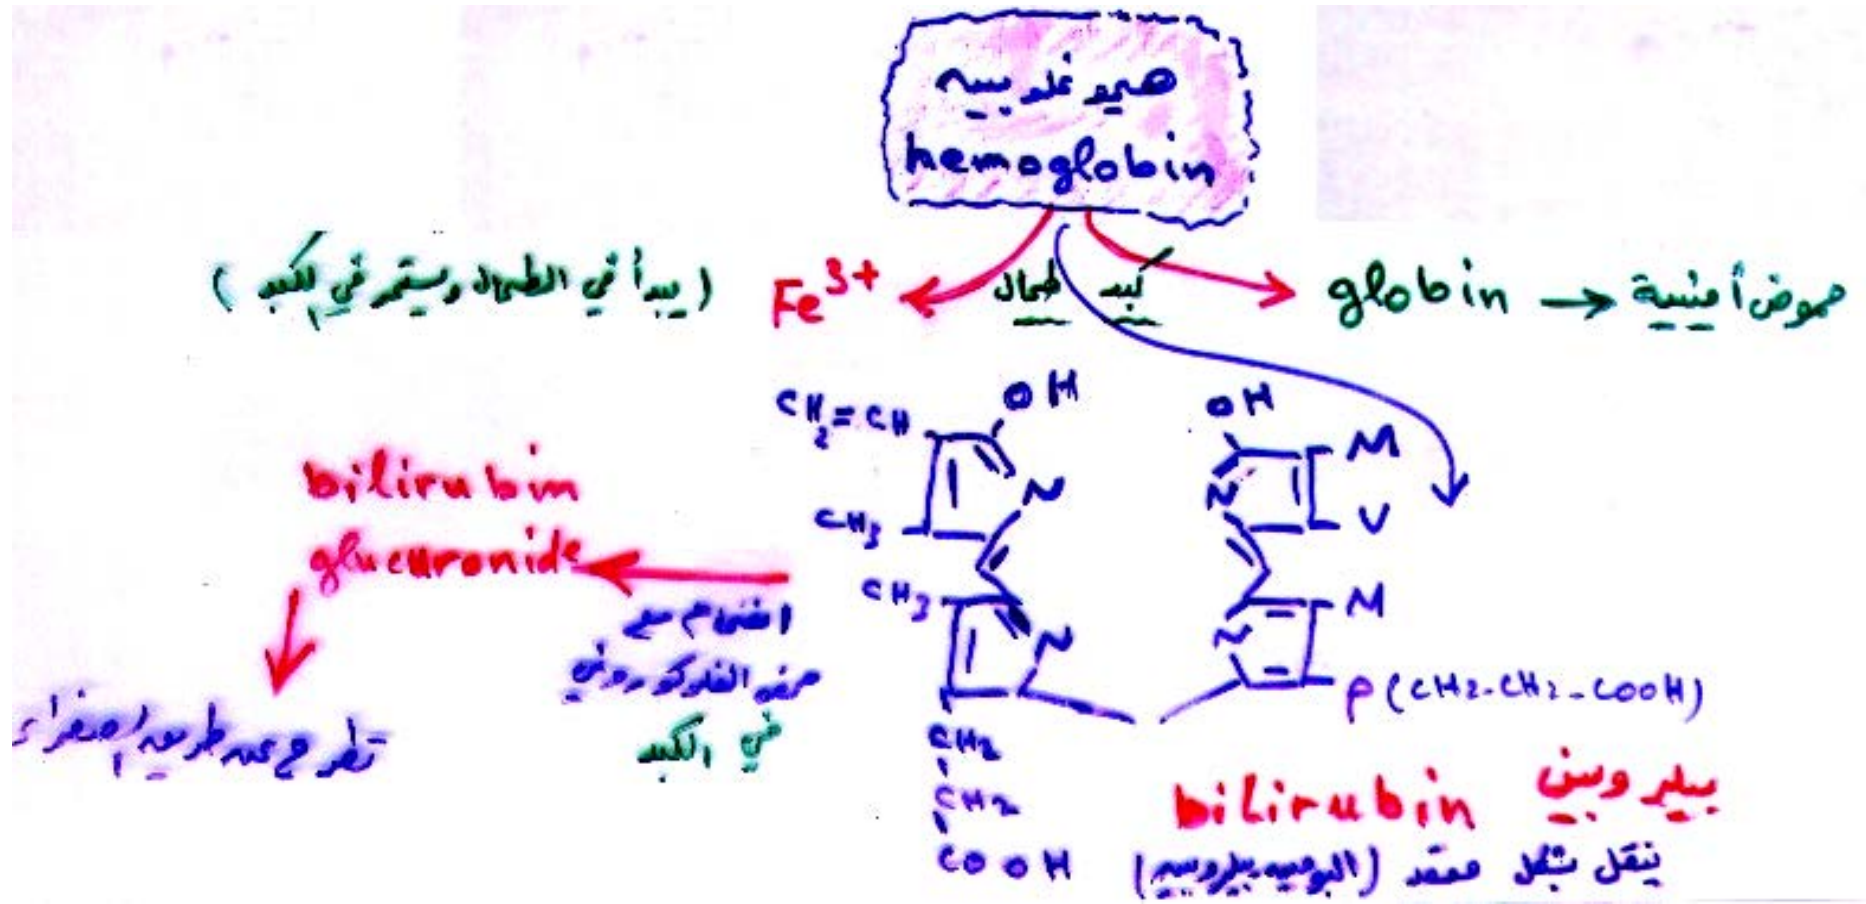 هيموغلوبين
hemoglobin
(يبدأ في الطحال ويستمر في الكبد)
Fe3+
طحال
كبد
globin → حموض أمينية
CH2=CH
OH
N
CH3
CH3
N
CH2
CH2
COOH
OH
M
N
V
M
N
P (CH2-CH2-COOH)
bilirubin
glucuronide
انضمام مع
حمض الغلوكوروني
في الكبد
تطرح عن طريق الصفراء
bilirubin بيلروبين
ينقل بشكل معقد (البومين بيلروبين)